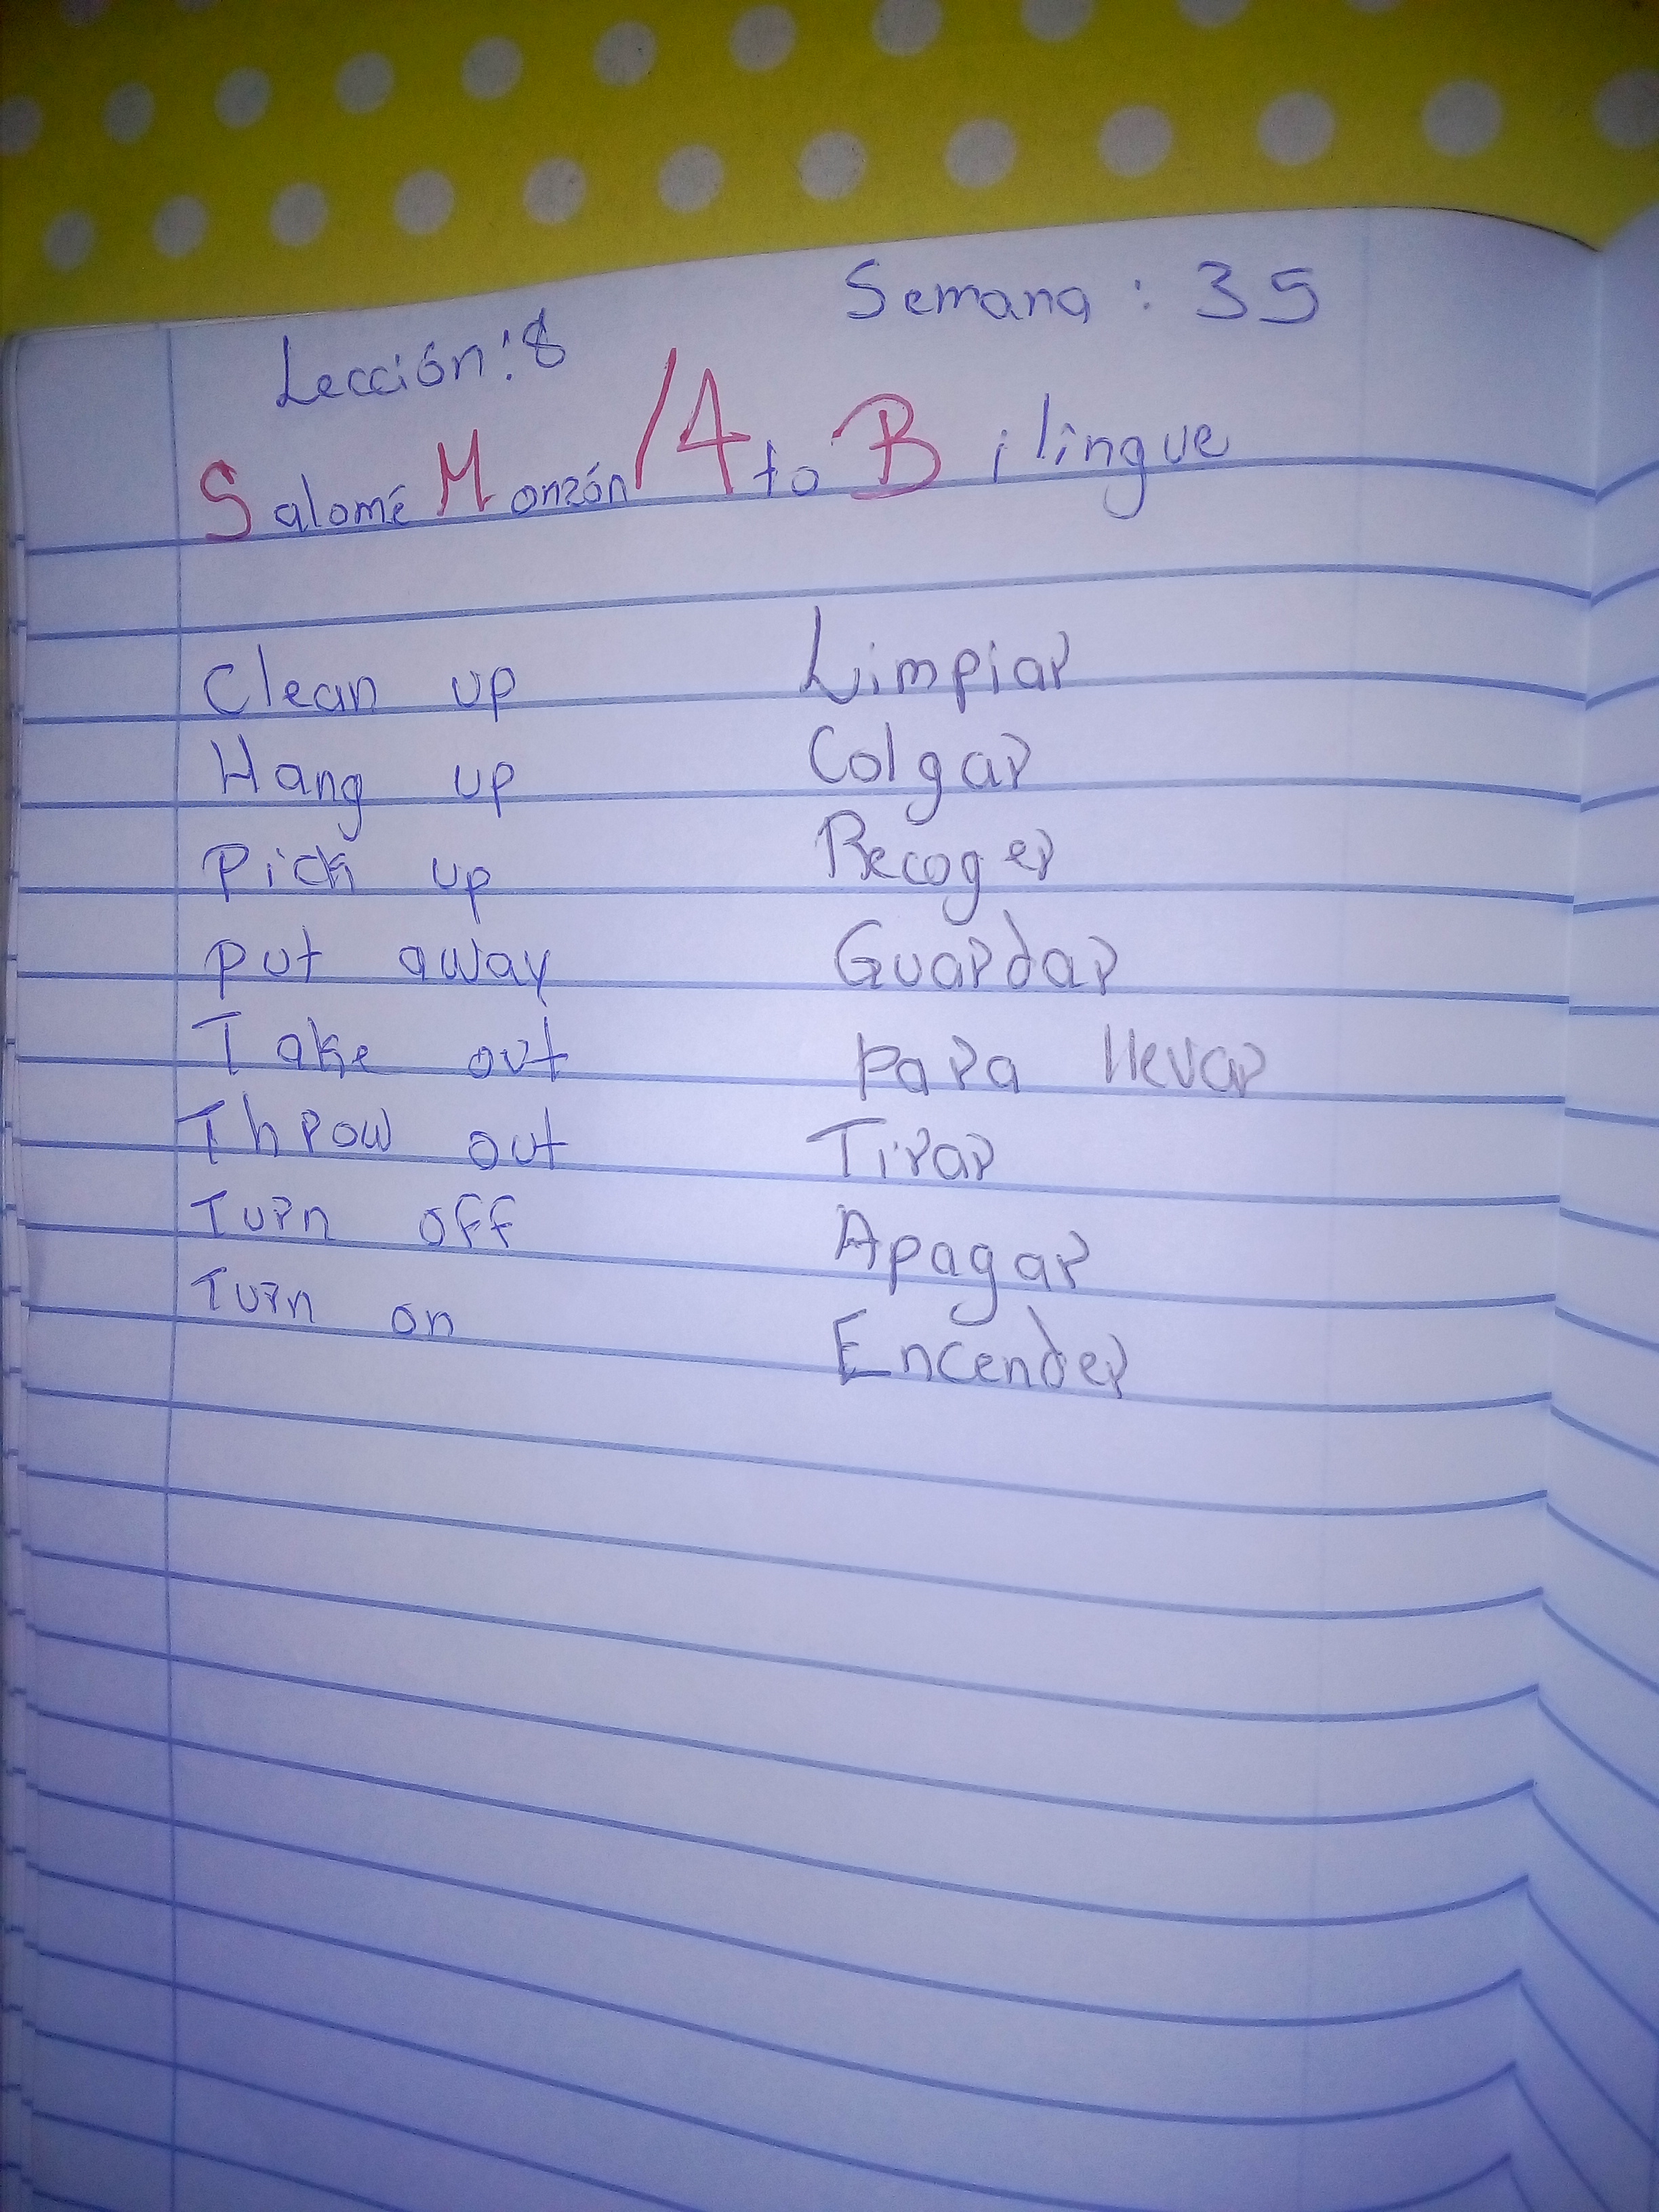 Semana: 35
Lección: 8
Salomé Monzón / 4to Bilingue
Clean up Limpiar
Hang up Colgar
Pick up Recoger
put away Guardar
Take out para llevar
Throw out Tirar
Turn off Apagar
Turn on Encender